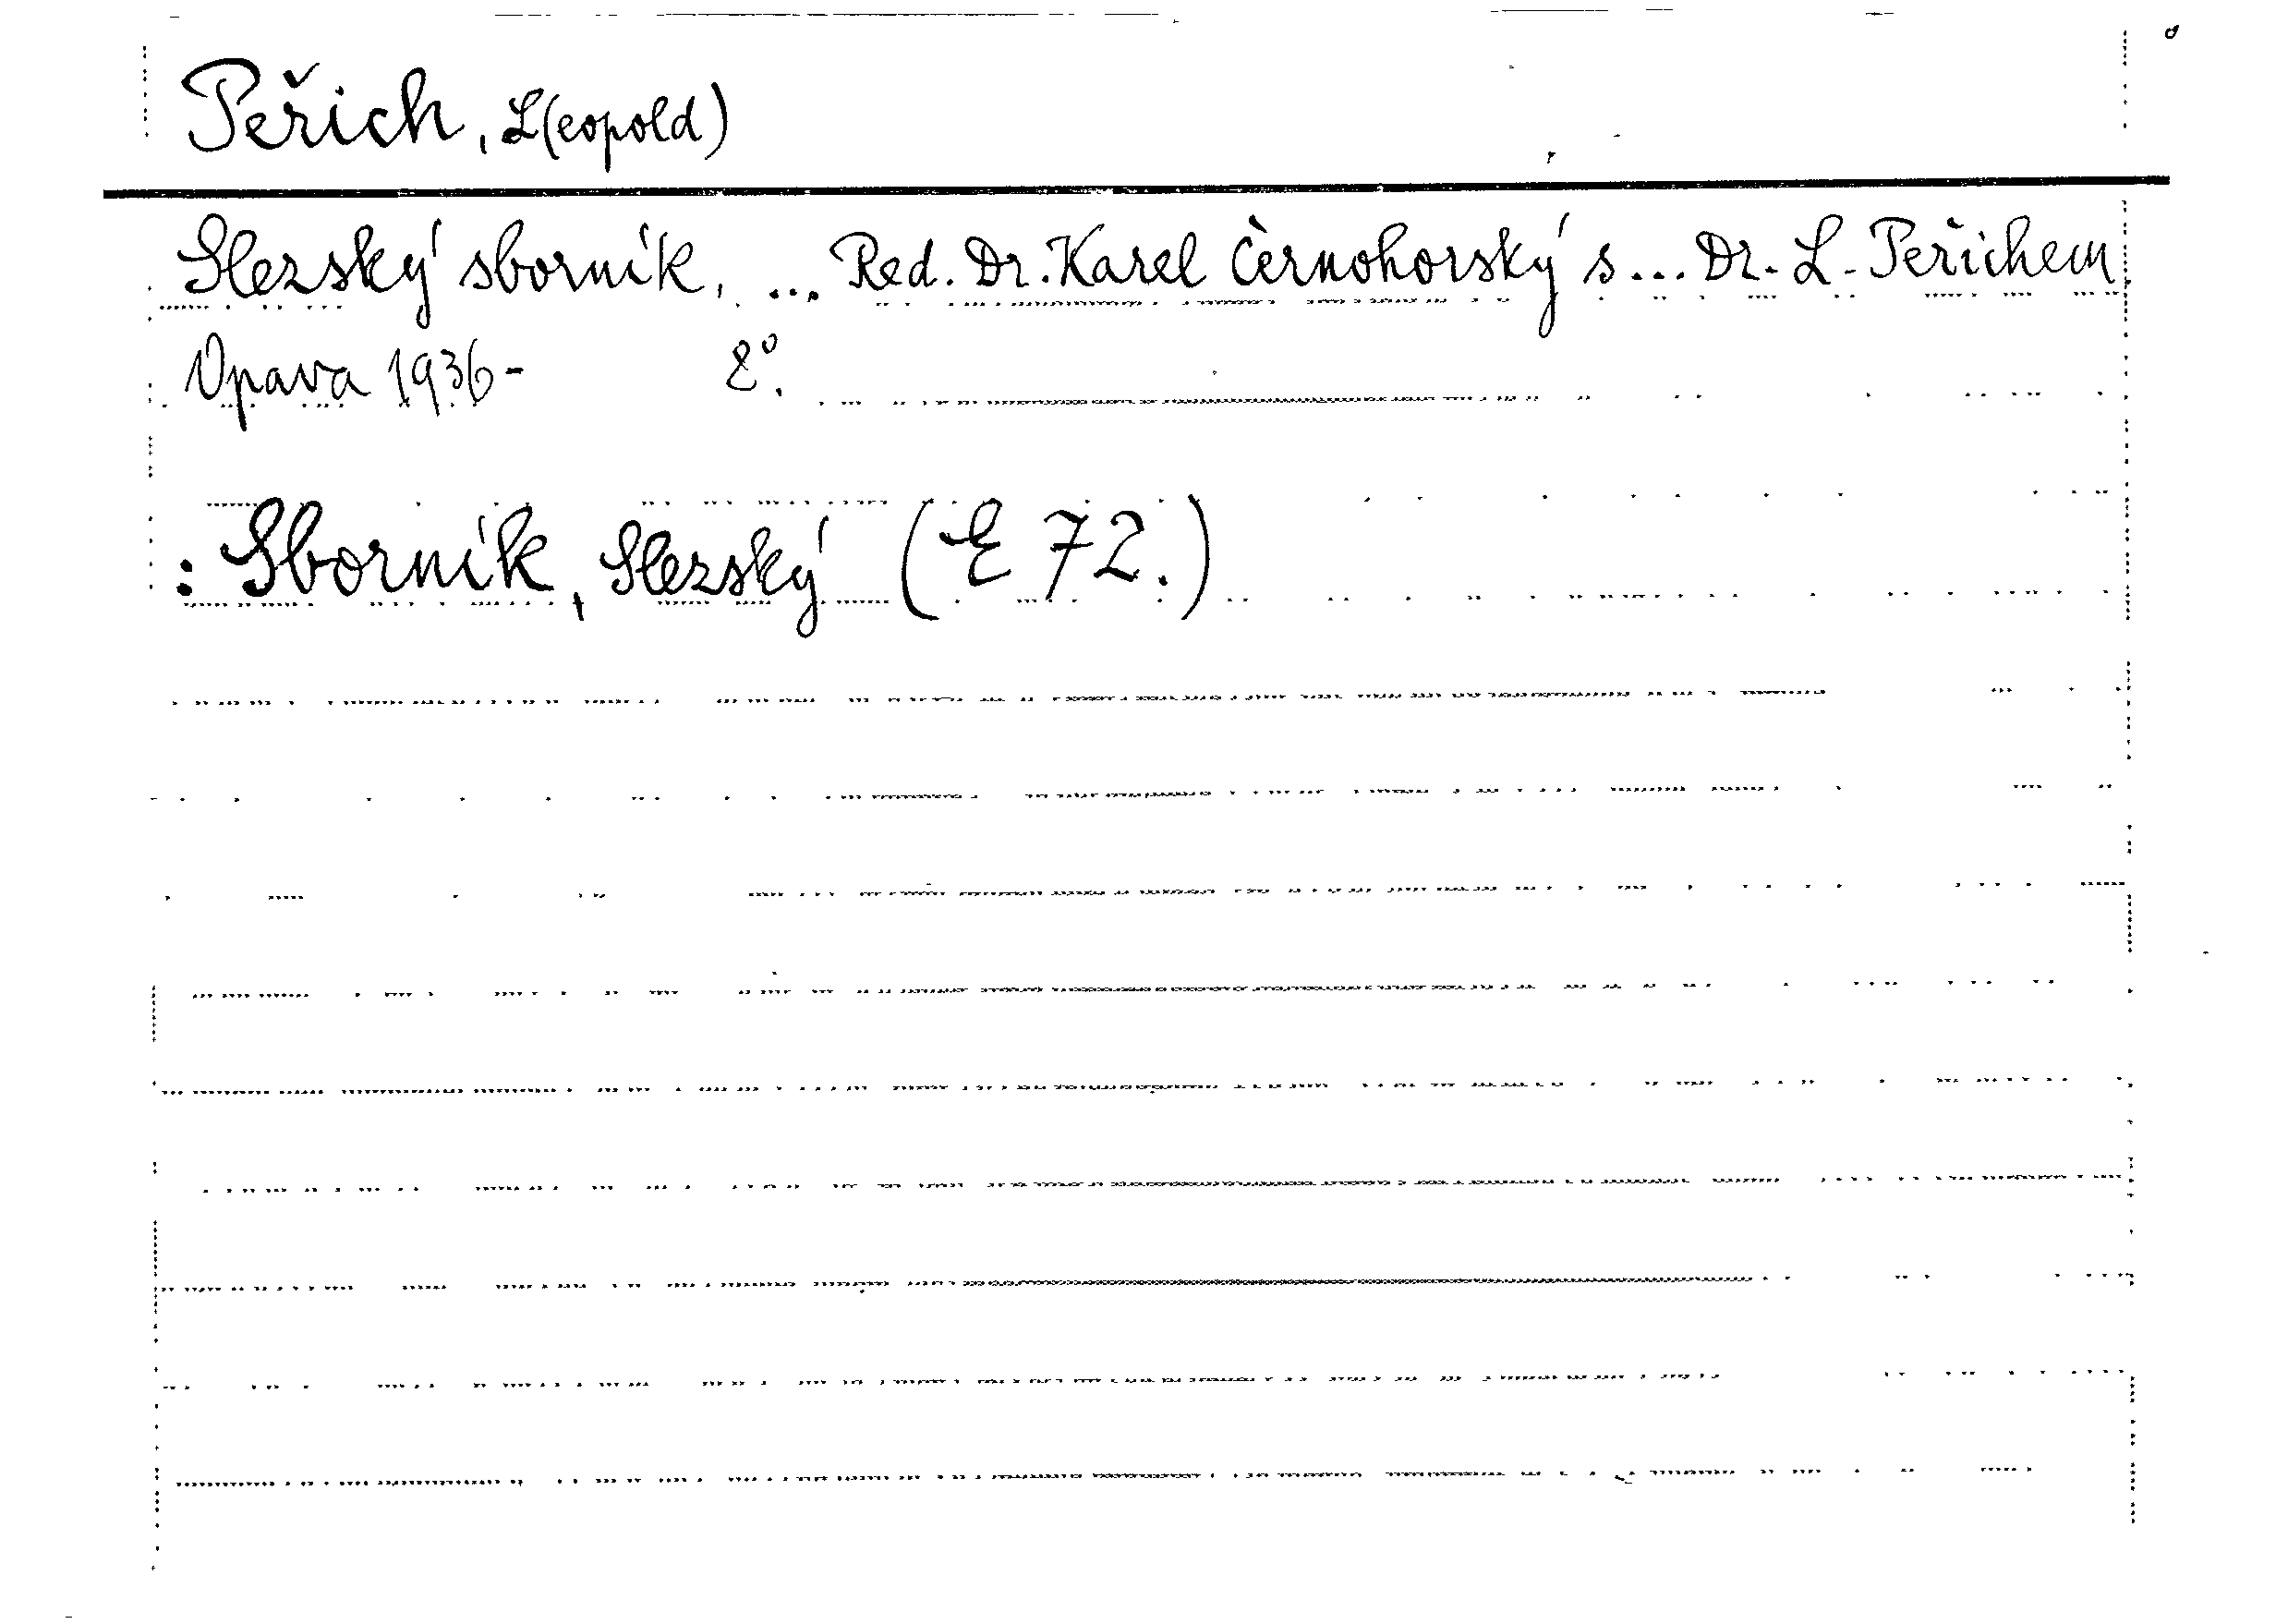 Peřich, L(eopold)
Slezský sborník, ... Red. Dr. Karel Černohorský s ... Dr. L. Peřichem.
Opava 1936- 8°.
: Sborník, Slezský (E 72.)